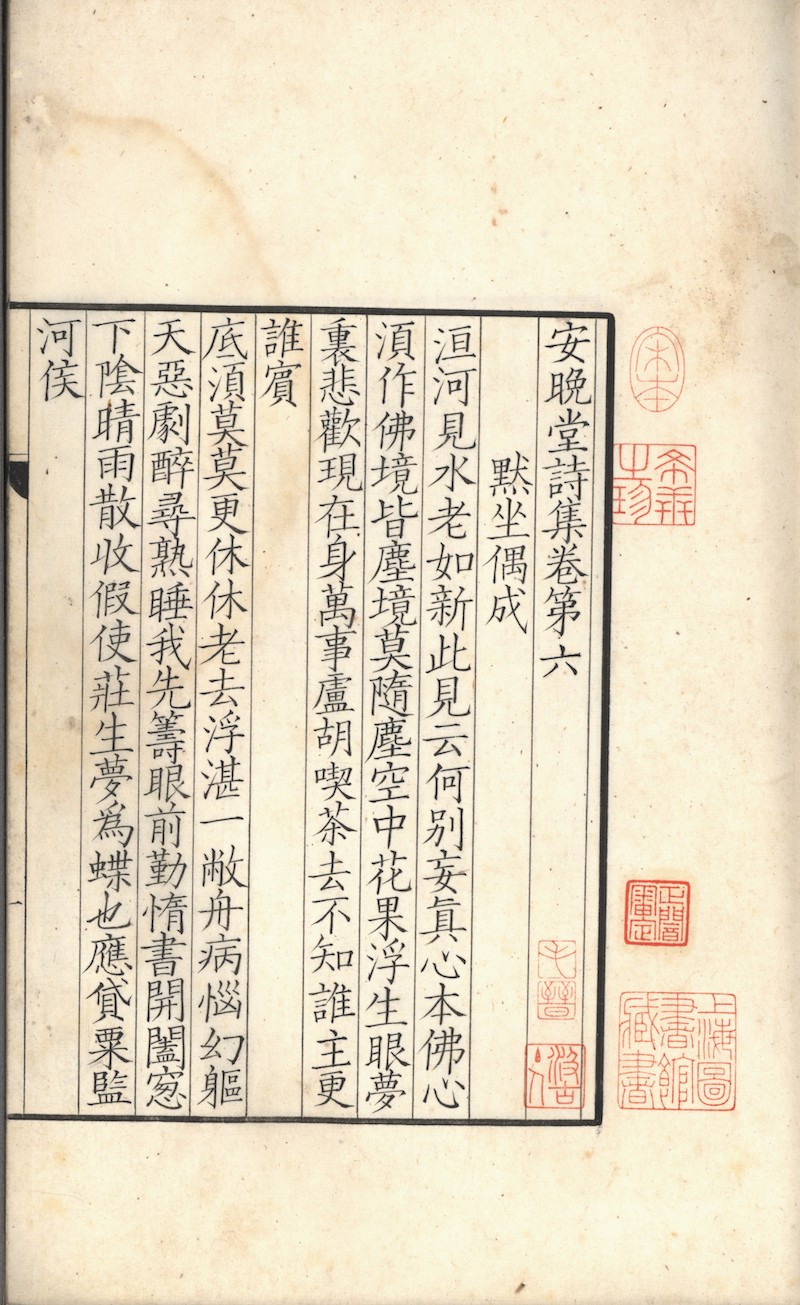 宋本
希世之珍
正闇審定
上海圖書館藏書
安晚堂詩集卷第六
毛晉
默坐偶成
洹河見水老如新此見云何別妄眞心本佛心
湏作佛境皆塵境莫隨塵空中花果浮生眼夢
裏悲歡現在身萬事盧胡喫茶去不知誰主更
誰賓
底湏莫莫更休休老去浮湛一敝舟病惱幻軀
天惡劇醉尋熟睡我先籌眼前勤惰書開闔窓
下陰晴雨散收假使莊生夢爲蝶也應貸粟監
河侯
一